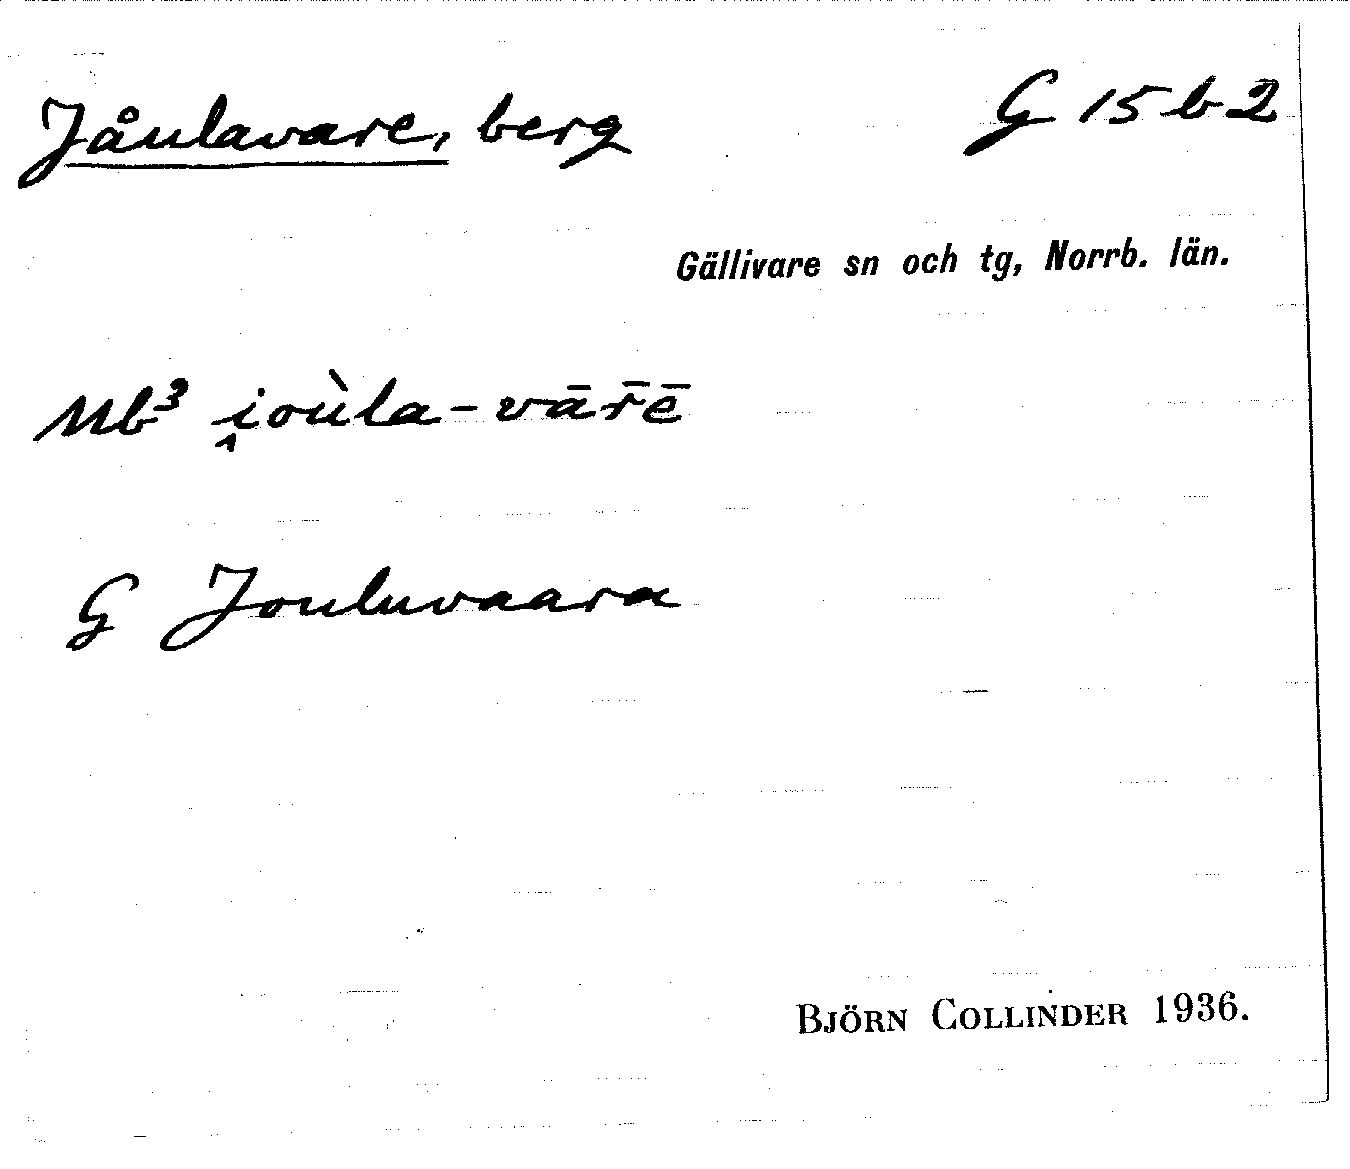 Jåulavare, berg G 15 b 2
Gällivare sn och tg, Norrb. län.
Mb³ i̭oùla-vār̄ē
G Jouluvaara
BJÖRN COLLINDER 1936.